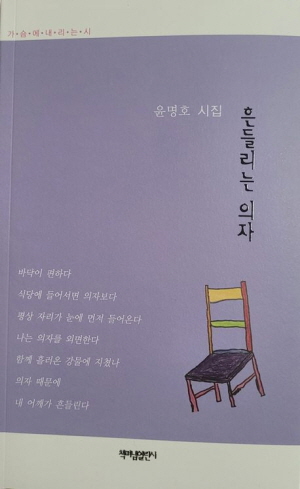 가•슴•에•내•리•는•시
윤명호 시집
흔들리는 의자
바닥이 편하다
식당에 들어서면 의자보다
평상 자리가 눈에 먼저 들어온다
나는 의자를 외면한다
함께 흘러온 강물에 지쳤나
의자 때문에
내 어깨가 흔들린다
책펴냄열린시